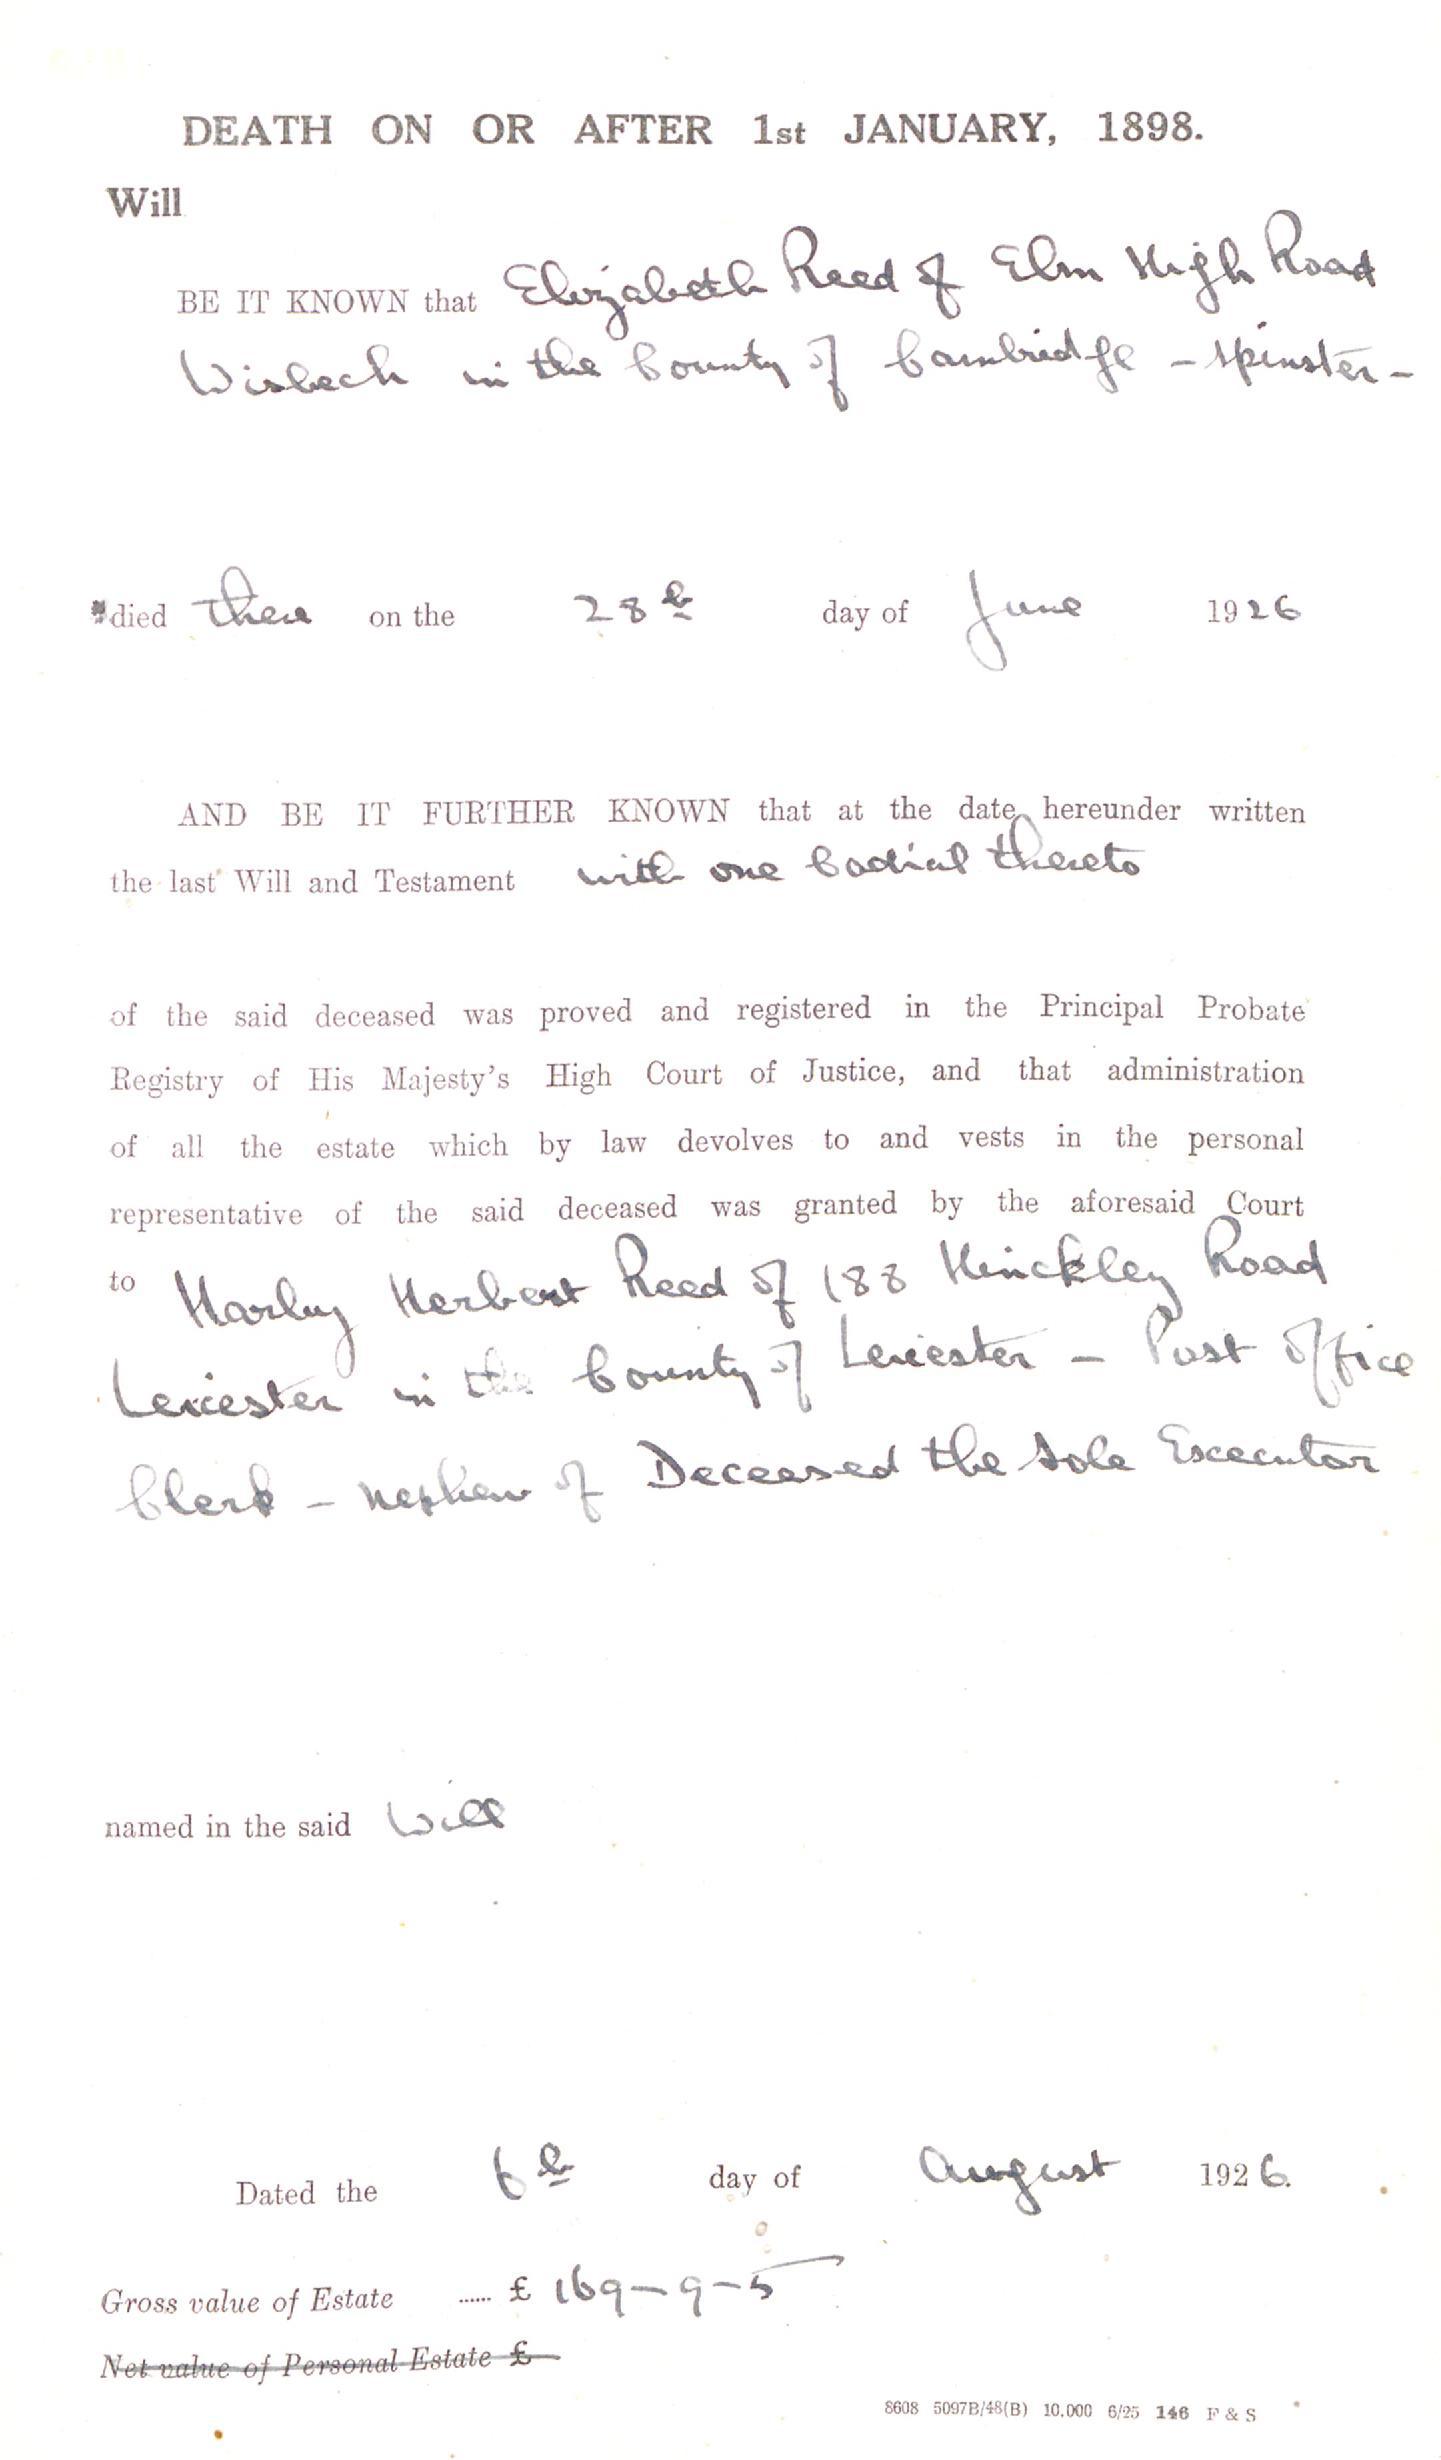 DEATH ON OR AFTER 1st JANUARY, 1898.
Will
BE IT KNOWN that Elizabeth Reed of Elm High Road
Wisbech in the County of Cambridge - Spinster -
*died there on the 28th day of June 1926
AND BE IT FURTHER KNOWN that at the date hereunder written
the last Will and Testament with one Codicil thereto
of the said deceased was proved and registered in the Principal Probate
Registry of His Majesty's High Court of Justice, and that administration
of all the estate which by law devolves to and vests in the personal
representative of the said deceased was granted by the aforesaid Court
to Harley Herbert Reed of 188 Hinckley Road
Leicester in the County of Leicester - Post Office
Clerk - nephew of Deceased the Sole Executor
named in the said Will
Dated the 6th day of August 1926.
Gross value of Estate ...... £ 169-9-5
Net value of Personal Estate £
8608 5097B/48(B) 10,000 6/25 146 F & S